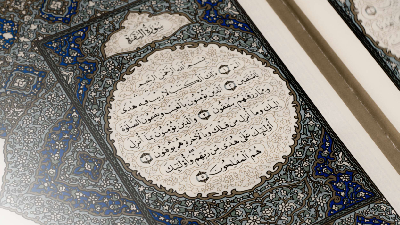 سورة البقرة
بسم الله الرحمن الرحيم
الم ذلك الكتاب لا ريب فيه هدى
للمتقين الذين يؤمنون بالغيب ويقيمون الصلوة
ومما رزقناهم ينفقون والذين يؤمنون بما أنزل
إليك وما أنزل من قبلك وبالآخرة هم يوقنون
أولئك على هدى من ربهم وأولئك
هم المفلحون